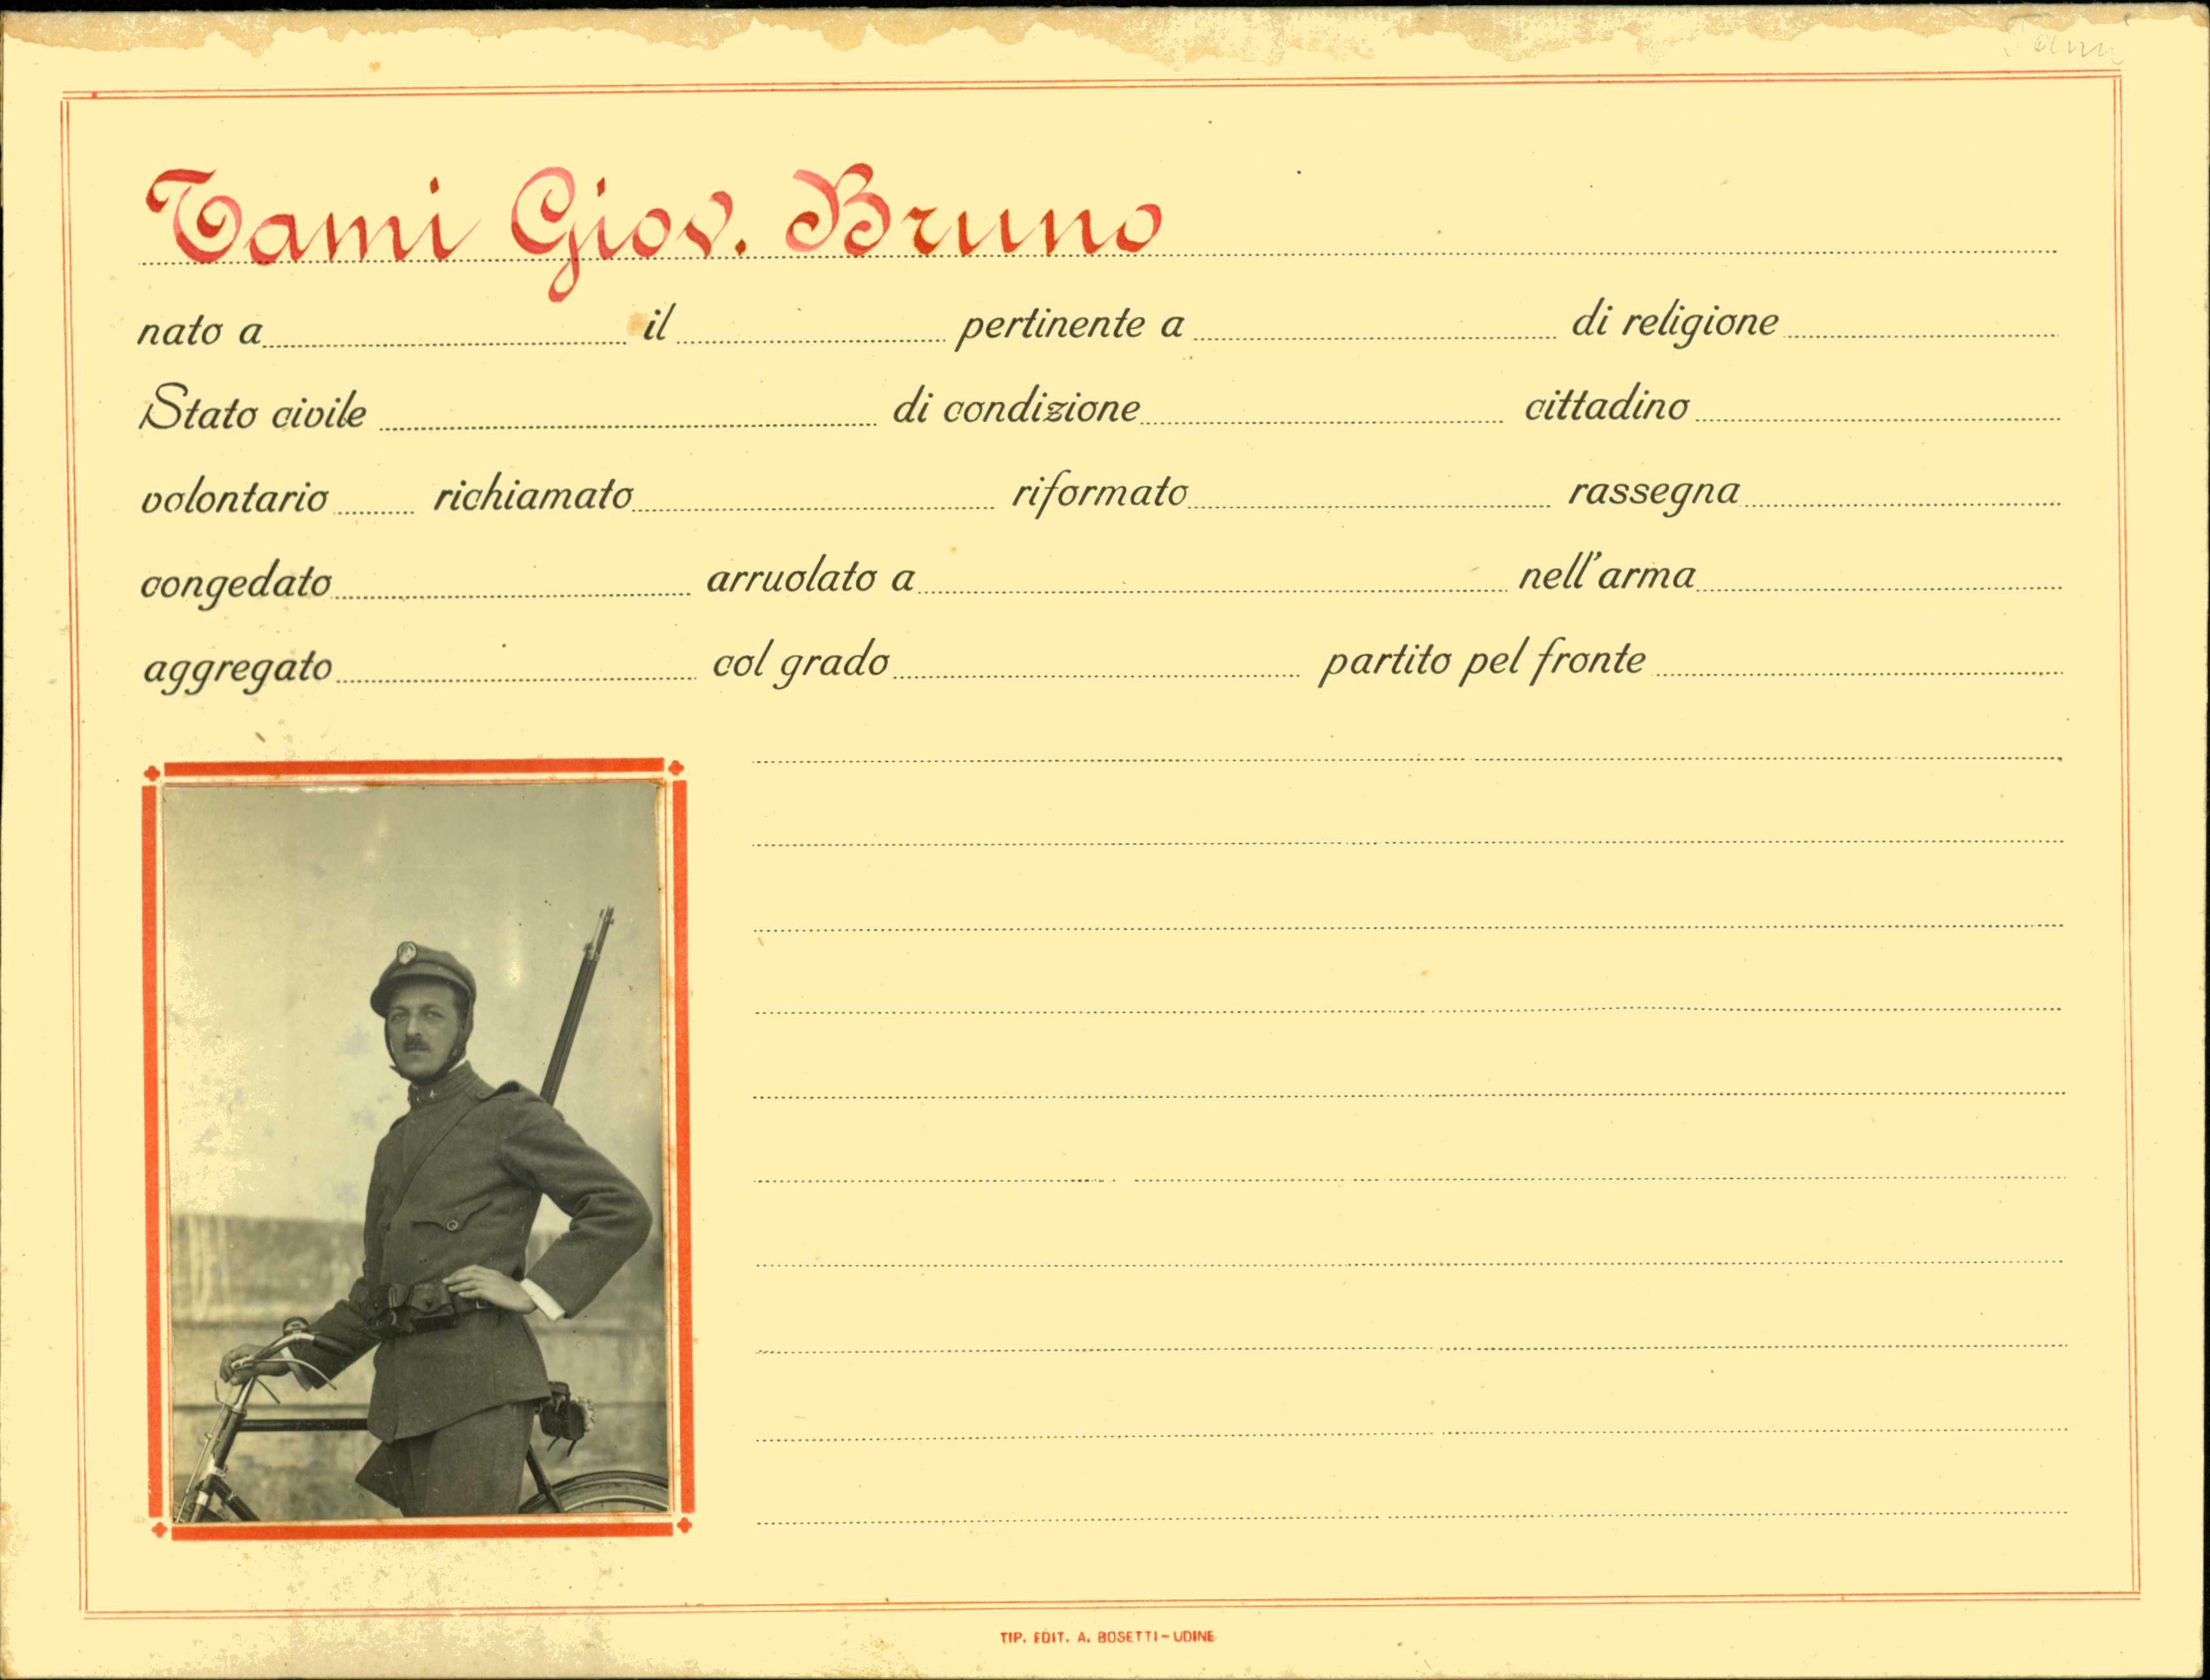 Tami
Tami Giov. Bruno
nato a il pertinente a di religione
Stato civile di condizione cittadino
volontario richiamato riformato rassegna
congedato arruolato a nell'arma
aggregato col grado partito pel fronte
TIP. EDIT. A. BOSETTI - UDINE